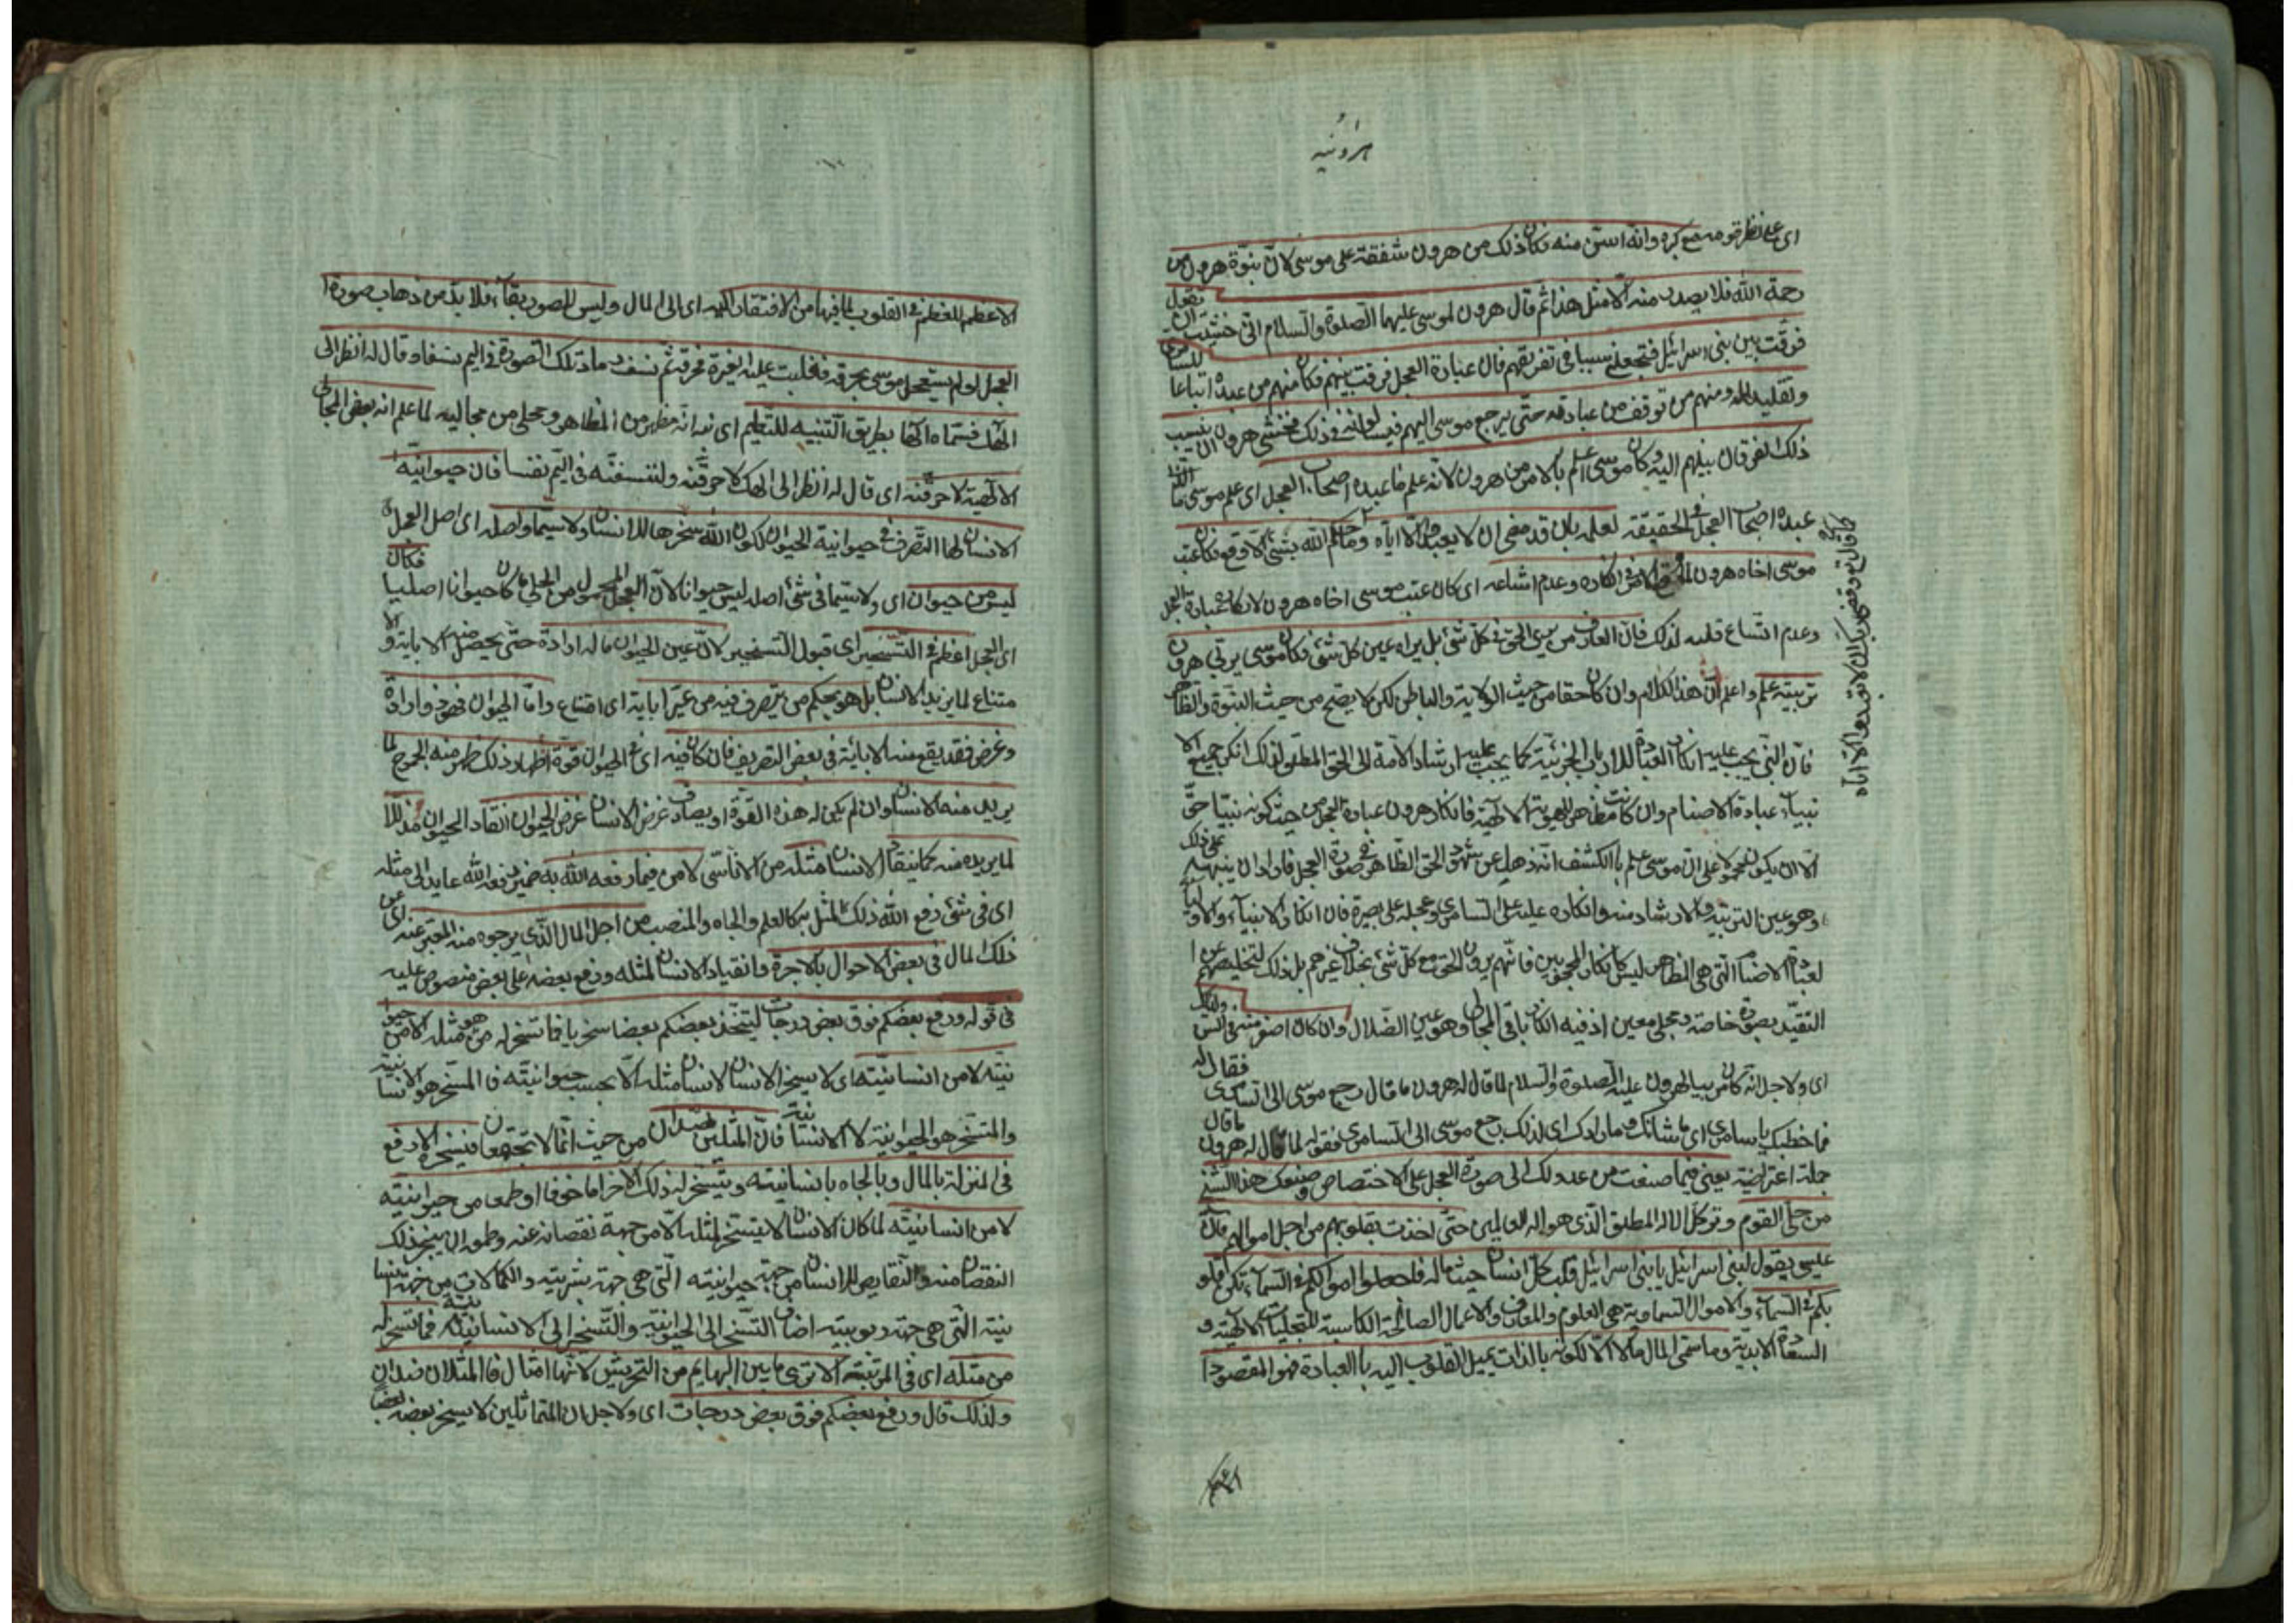 هرونية
اى على نظر قومه مع كبره وانه اسن منه فكان ذلك من هرون شفقة على موسى لان نبوة هرون من
رحمة الله فلا يصدر منه الا مثل هذا ثم قال هرون لموسى عليهما الصلوة والسلام انى خشيت ان تقول
فرقت بين بنى اسرائيل فتجعلنى سببا فى تفريقهم فان عبادة العجل فرقت بينهم فكان منهم من عبده اتباعا للسامرى
وتقليدا له ومنهم من توقف عن عبادته حتى يرجع موسى اليهم فيسألونه فى ذلك فخشى هرون ان ينسب
ذلك الفرقان بينهم اليه وكان موسى اعلم بالامر من هرون لانه علم ما عبده اصحاب العجل اى علم موسى ما الذى
عبده اصحاب العجل فى الحقيقة لعلمه بان الله قد قضى ان لا يعبد الا اياه وما حكم الله بشئ الا وقع فكان عتب
كما قال تعالى وقضى ربك ان لا تعبدوا الا اياه
موسى اخاه هرون لما وقع الامر فى انكاره وعدم اتساعه اى كان عتب موسى اخاه هرون لانكاره عبادة العجل
وعدم اتساع قلبه لذلك فان العارف من يرى الحق فى كل شئ بل يراه عين كل شئ فكان موسى يربى هرون
تربية علم واعلم ان هذا الكلام وان كان حقا من حيث الولاية والباطن لكن لا يصح من حيث النبوة والظاهر
فان النبى يجب عليه انكار العبادة للارباب الجزئية كما يجب عليه ارشاد الامة الى الحق المطلق لذلك انكر جميع الا
نبياء عبادة الاصنام وان كانت مظاهر للهوية الالهية فانكار هرون عبادة العجل من حيث كونه نبيا حق
الا ان يكون محمولا على ان موسى علم بالكشف انه ذهل عن شهود الحق الظاهر فى صورة العجل فاراد ان ينبهه على ذلك
وهو عين التربية والارشاد منه وانكاره عليه على السامرى وعجله على بصيرة فان انكار الانبياء والاولياء
لعبادة الاصنام التى هى المظاهر ليس كانكار المحجوبين فانهم يرون الحق مع كل شئ بخلاف غيرهم بل ذلك لتخليصهم عن ا
لتقيد بصورة خاصة ومجلى معين اذ فيه انكار باقى المجالى وهو عين الضلال وان كان اصغر منه فى السن ولذلك
اى ولاجل انه كان مربيا لهرون عليه الصلوة والسلام لما قال له هرون ما قال رجع موسى الى السامرى فقال له
فما خطبك يا سامرى اى ما شانك وما مرادك اى لذلك رجع موسى الى السامرى فقوله لما قال له هرون ما قال
جملة اعتراضية يعنى فيما صنعت من عدولك الى صورة العجل على الاختصاص وصنعك هذا الشبح
من حلى القوم وترك الاله المطلق الذى هو اله العالمين حتى اخذت بقلوبهم من اجل اموالهم فان
عيسى يقول لبنى اسرائيل يا بنى اسرائيل قلب كل انسان حيث ماله فاجعلوا اموالكم فى السماء تكن قلو
بكم فى السماء والاموال السماوية هى العلوم والمعارف والاعمال الصالحة الكاسبة للتجليات الالهية و
السعادة الابدية وما سمى المال مالا الا لكونه بالذات يميل القلوب اليه بالعبادة فهو المقصود ا
لاعظم المعظم فى القلوب لما فيها من الافتقار اليه اى الى المال وليس للصور بقاء فلا بد من ذهاب صورة ا
لعجل لو لم يستعجل موسى بحرقه فغلبت عليه الغيرة فحرقه ثم نسف رماد تلك الصورة فى اليم نسفا وقال له انظر الى
الهك فسماه الها بطريق التنبيه للتعليم اى نبه انه مظهر من المظاهر ومجلى من مجاليه لما علم انه بعض المجالى
الالهية لاحرقنه اى قال له انظر الى الهك لاحرقنه ولننسفنه فى اليم نفسا فان حيوانية
الانسان لها التصرف فى حيوانية الحيوان لكون الله سخرها للانسان ولا سيما واصله اى اصل العجل
ليس من حيوان اى ولا سيما فى شئ اصله ليس حيوانا لان العجل المعمول من الحلى ما كان حيوانا اصليا فكان
اى العجل اعظم فى التسخير اى قبول التسخير لان غير الحيوان ما له ارادة حتى يحصل منه الاباية والا
متناع لما يريد الانسان بل هو بحكم من يتصرف فيه من غير اباية اى امتناع واما الحيوان فهو ذو ارادة
وغرض فقد يقع منه الاباية فى بعض التصريف فان كان فيه اى فى الحيوان قوة اظهار ذلك ظهر منه الجموح لما
يريد منه الانسان وان لم يكن له هذه القوة او يصادف غرض الانسان غرض الحيوان انقاد الحيوان مذللا
لما يريده منه كما ينقاد الانسان مثله من الاناسى لامر فيما رفعه الله به ضمير رفعه الله عايد الى مثله
اى فى شئ رفع الله ذلك المثل به كالعلم والجاه والمنصب من اجل المال الذى يرجوه منه المعبر عنه اى عن
ذلك المال فى بعض الاحوال بالاجرة وانقياد الانسان لمثله ورفع بعضه على بعض منصوص عليه
فى قوله ورفع بعضكم فوق بعض درجات ليتخذ بعضكم بعضا سخريا فما تسخر له من هو مثله الا من حيوا
نيته لا من انسانيته اى لا يسخر الانسان لانسان مثله الا بحسب حيوانيته فالمسخر هو الانسانية
والمتسخر هو الحيوانية لا الانسانية فان المثلين ضدان من حيث انهما لا يجتمعان فيسخره الارفع
فى المنزلة بالمال وبالجاه بانسانيته ويتسخر له ذلك الاخر اما خوفا او طمعا من حيوانيته
لا من انسانيته لما كان الانسان لا يتسخر لمثله الا من جهة نقصانه عنه وطمعه ان ينجبر ذلك
النقصان منه والنقايص للانسان من جهة حيوانيته التى هى جهة بشريته والكمالات من جهة انسا
نيته التى هى جهة ربوبيته اضاف التسخر الى الحيوانية والتسخير الى الانسانية فما تسخر له
من مثله اى فى المرتبة الا ترى ما بين البهايم من التحريش لانها امثال فالمثلان ضدان
ولذلك قال ورفع بعضكم فوق بعض درجات اى ولاجل ان المتماثلين لا يسخر بعضه بعضا